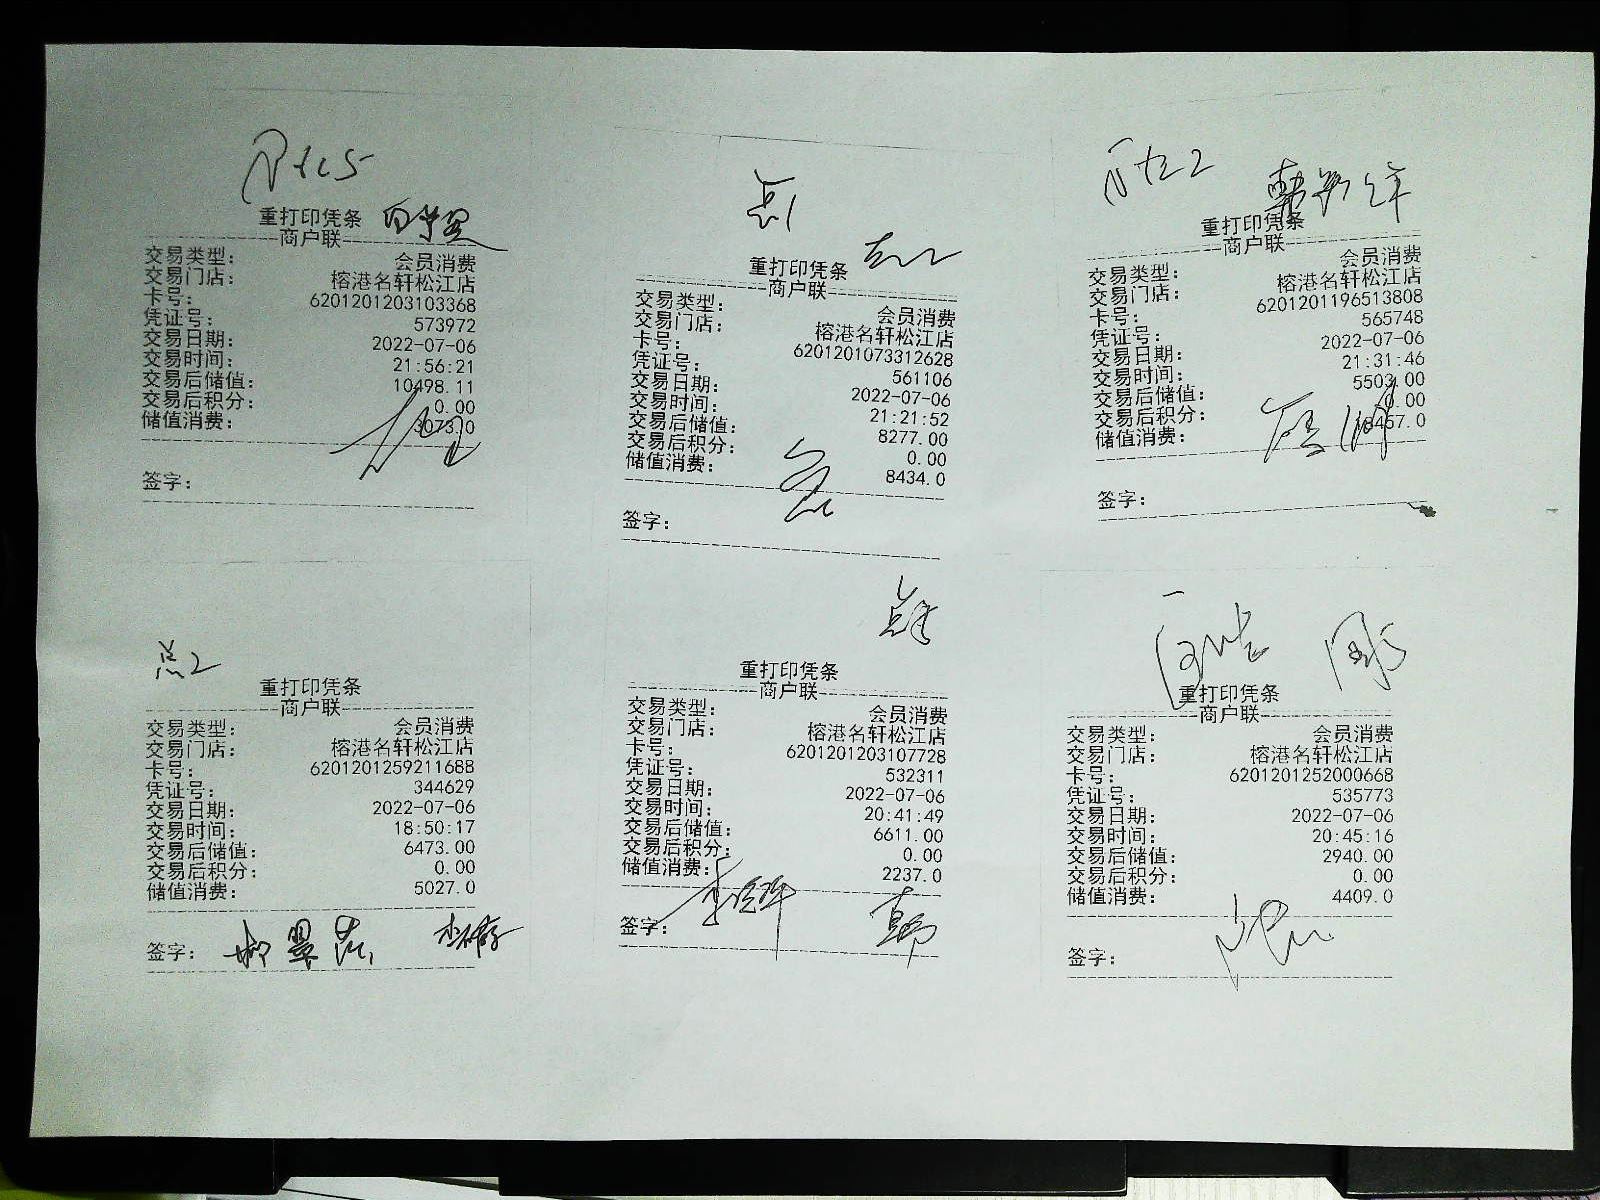 重打印凭条
商户联
交易类型： 会员消费
交易门店： 榕港名轩松江店
卡号： 6201201203103368
凭证号： 573972
交易日期： 2022-07-06
交易时间： 21:56:21
交易后储值： 10498.11
交易后积分： 0.00
储值消费：
签字：
重打印凭条
商户联
交易类型： 会员消费
交易门店： 榕港名轩松江店
卡号： 6201201073312628
凭证号： 561106
交易日期： 2022-07-06
交易时间： 21:21:52
交易后储值： 8277.00
交易后积分： 0.00
储值消费： 8434.0
签字：
重打印凭条
商户联
交易类型： 会员消费
交易门店： 榕港名轩松江店
卡号： 6201201196513808
凭证号： 565748
交易日期： 2022-07-06
交易时间： 21:31:46
交易后储值： 5503.00
交易后积分： 0.00
储值消费：
签字：
总2
重打印凭条
商户联
交易类型： 会员消费
交易门店： 榕港名轩松江店
卡号： 6201201259211688
凭证号： 344629
交易日期： 2022-07-06
交易时间： 18:50:17
交易后储值： 6473.00
交易后积分： 0.00
储值消费： 5027.0
签字：
重打印凭条
商户联
交易类型： 会员消费
交易门店： 榕港名轩松江店
卡号： 6201201203107728
凭证号： 532311
交易日期： 2022-07-06
交易时间： 20:41:49
交易后储值： 6611.00
交易后积分： 0.00
储值消费： 2237.0
签字：
重打印凭条
商户联
交易类型： 会员消费
交易门店： 榕港名轩松江店
卡号： 6201201252000668
凭证号： 535773
交易日期： 2022-07-06
交易时间： 20:45:16
交易后储值： 2940.00
交易后积分： 0.00
储值消费： 4409.0
签字：